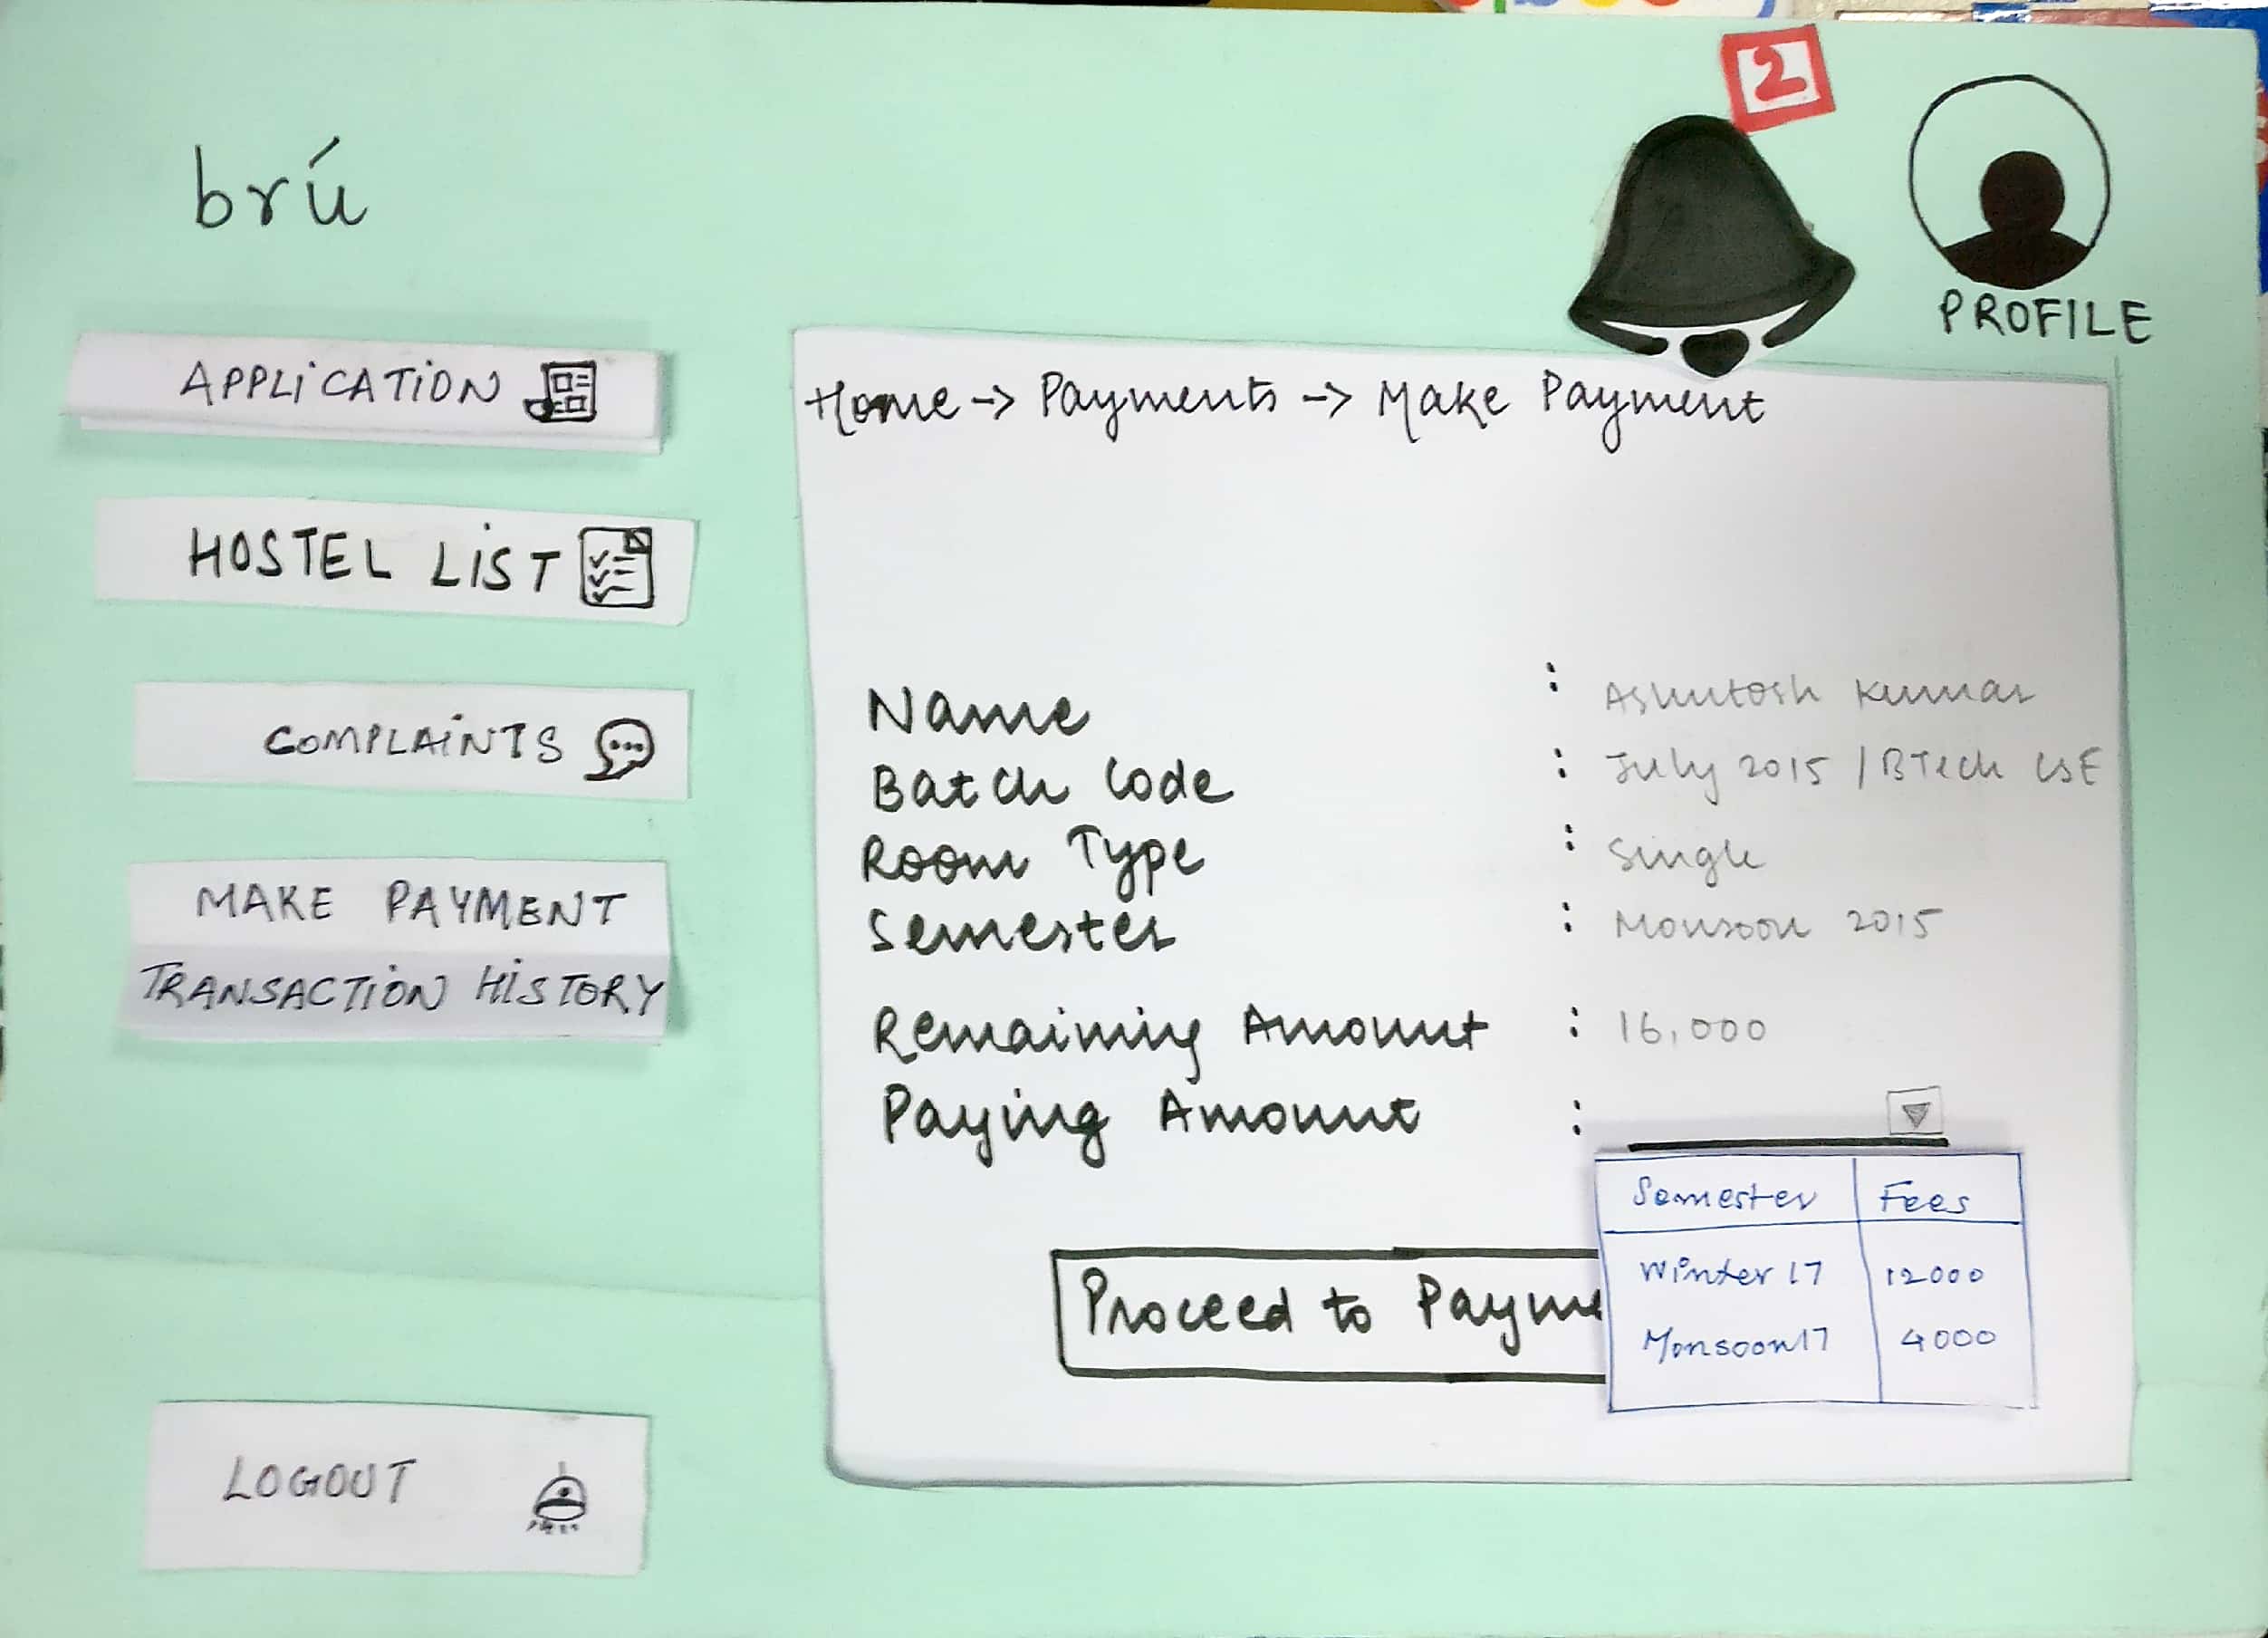 2
brú
PROFILE
APPLICATION
HOSTEL LIST
COMPLAINTS
MAKE PAYMENT
TRANSACTION HISTORY
LOGOUT
Home -> Payments -> Make Payment
Name : Ashutosh Kumar
Batch Code : July 2015 / BTech CSE
Room Type : Single
Semester : Monsoon 2015
Remaining Amount : 16,000
Paying Amount :
Semester Fees
Winter 17 12000
Monsoon 17 4000
Proceed to Payme